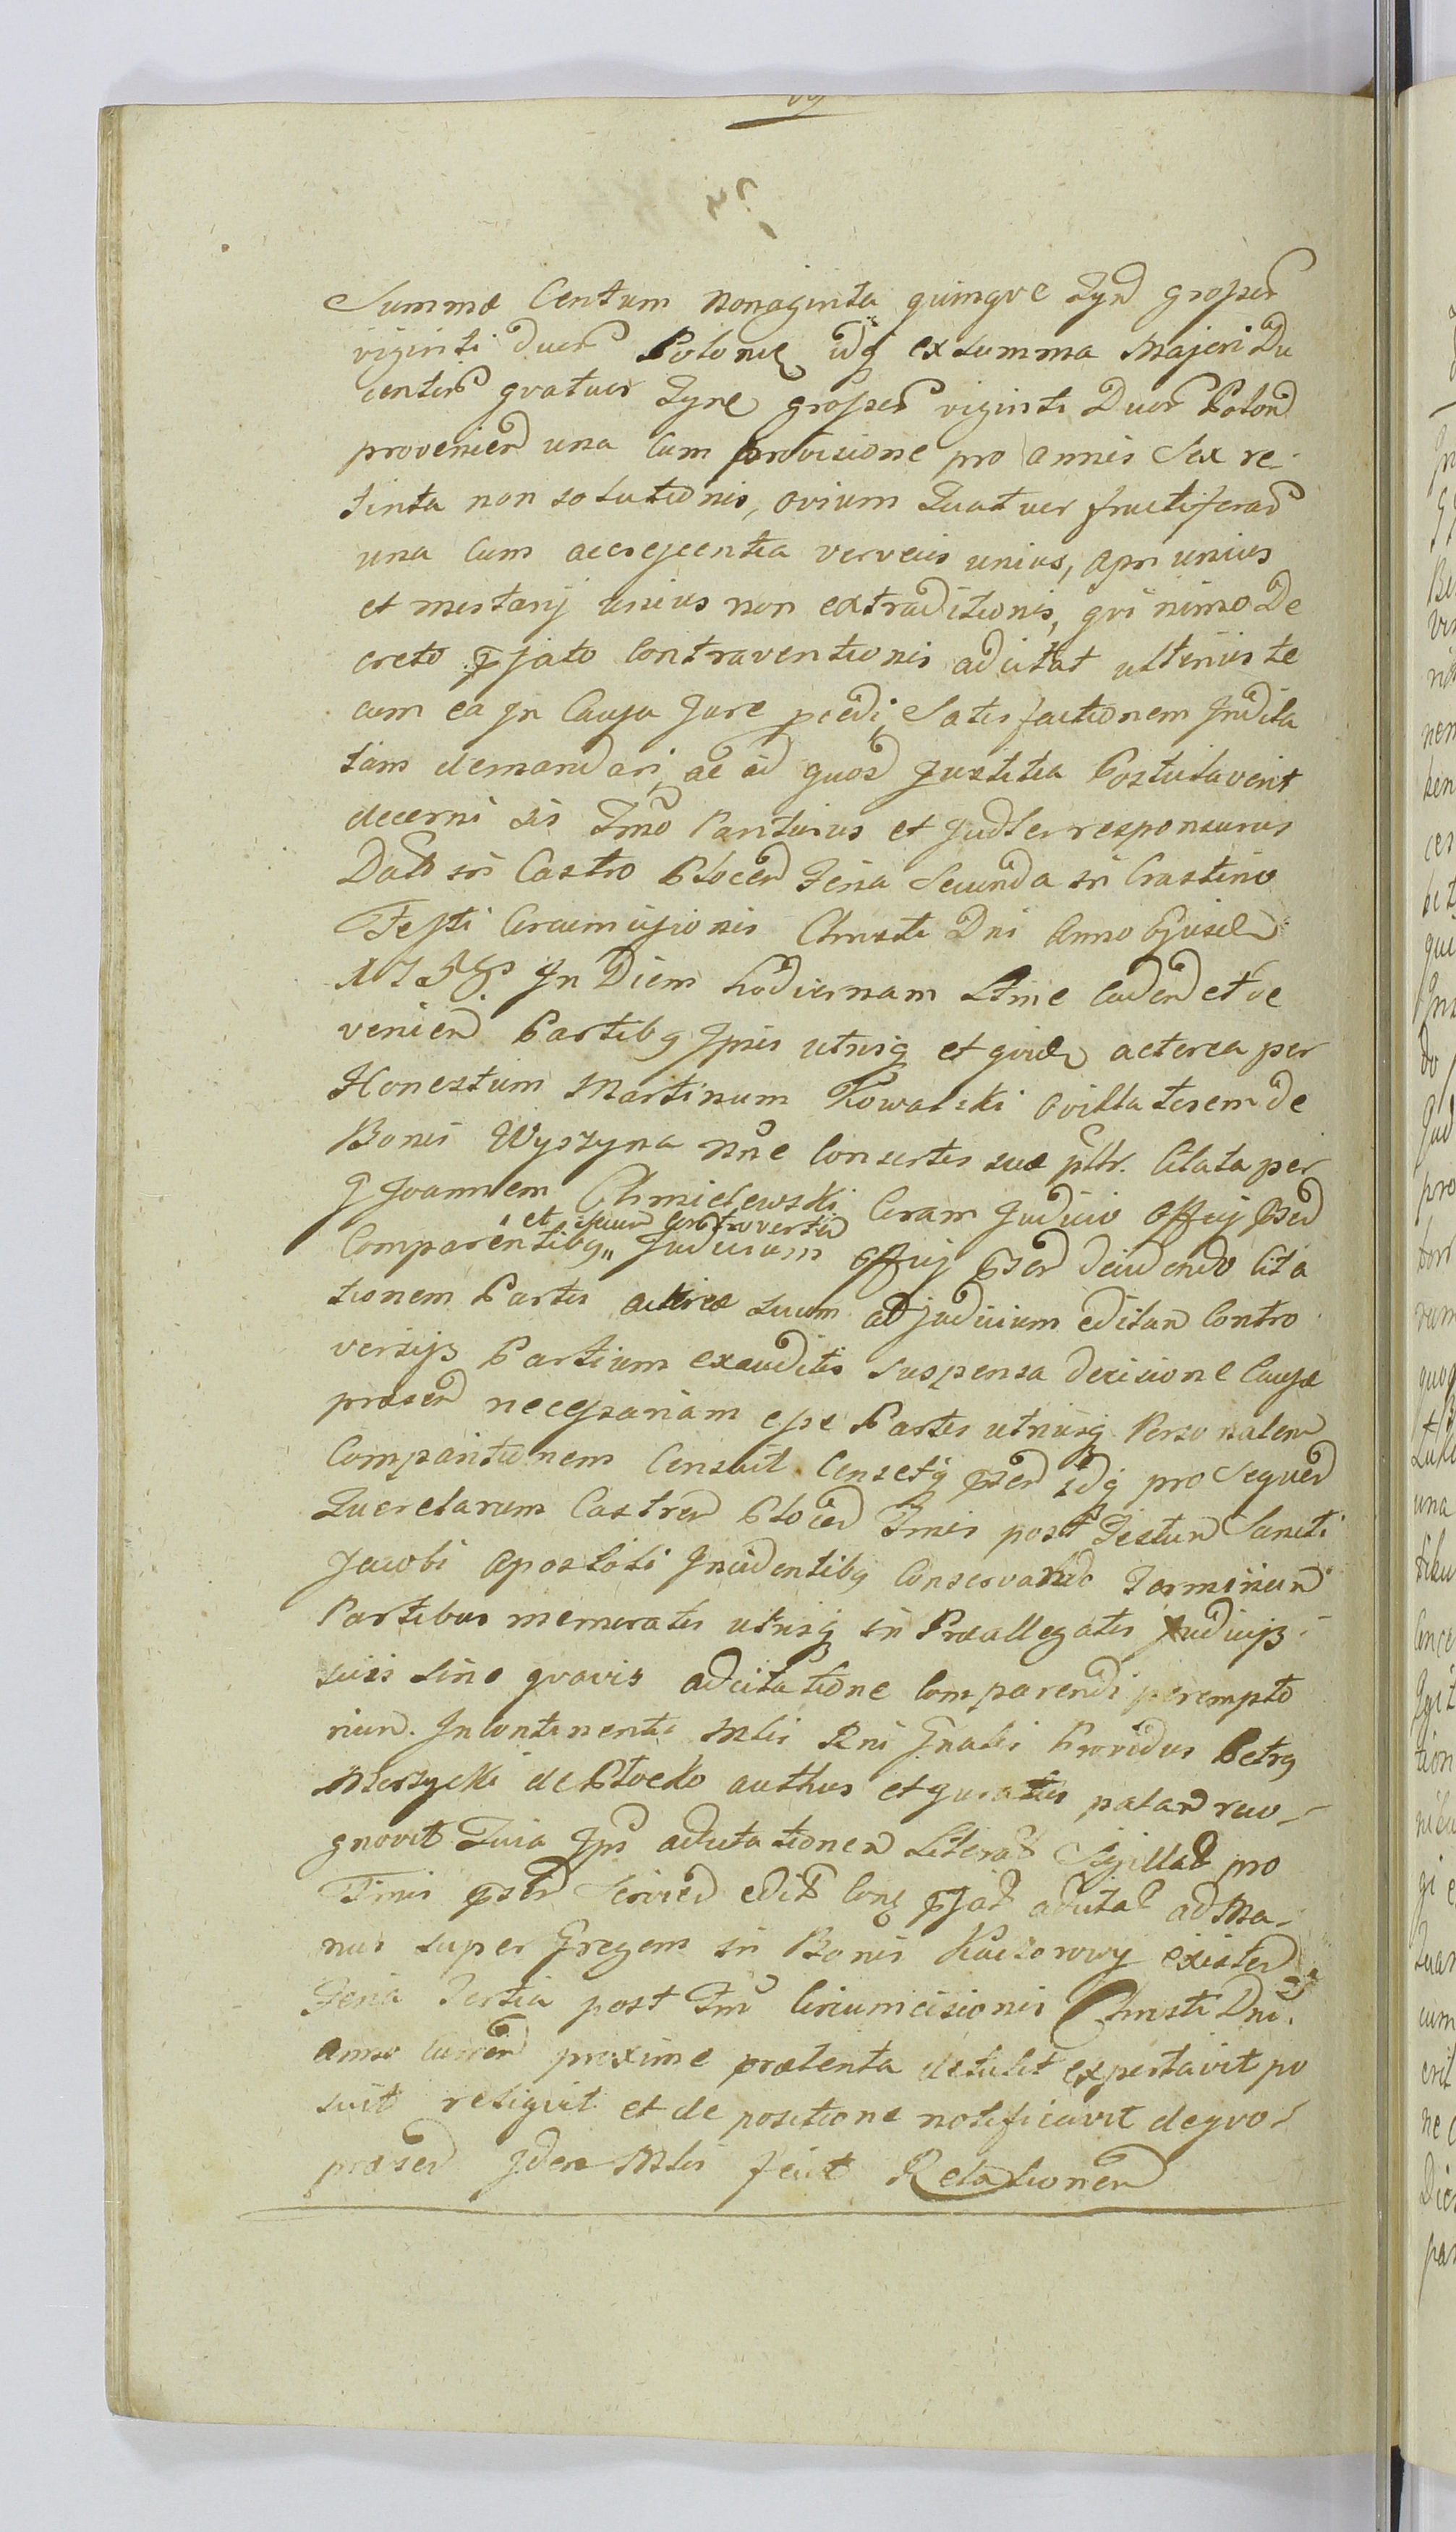 Summæ Centum nonaginta quinqve Tynf grossor
viginti duor Polonic idq ex summa Majori Du
centor qvatuor Tynf grossor viginti Duor Polon
provenien una Cum provisione pro annis Sex re
tenta non solutionis, ovium Quatuor fructiferar
una Cum accrescentia vervecis unius, apri unius
et unius non extraditionis, qvi nimo De
creto pjato Contraventionis adcitat ulterius te
cum ea In Causa Jure pcedi, Satisfactionem Indila
tam demandari, ac id quod Justitia Postulaverit
decerni sis Tmo Pariturus et Judler responsurus
Dat in Castro Plocen Feria Secunda in Crastino
Festi Circumcisionis Christi Dni Anno Ejusdem
1758. In Diem hodiernam Ltme Caden et de
venien Partibq Ipsis utrisq et qvidem actorea per
Honestum Martinum Kowalski ovillatorem de
Bonis Wyszyna nne Consortis suæ pltr. Citata per
G Joannem Chmielewski Coram Judicio Officij psen
et suam Controversian
Comparentibq Judicium Officij psen decidendo Cita
tionem Partis actoreæ suum ad judicium editan Contro
versijs Partium exauditis suspensa decisione Causæ
præsen necessariam esse Partis utriusq Personalem
Comparitionem Censuit Censetq psen idq pro Sequen
Querelarum Castren Plocen Tmis post Festum Sancti
Jacobi Apostoli Incidentibq Conservando Terminum
Partibus memoratis utrisq in Præallegatis Judicijs
suis sine qvavis adcitatione Comparendi perempto
rium. In Continenti Mlis Rni Gnalis Providus Petrq
de Plocko authus et juratus palam reco
gnovit Quia Ips adcitationem Literat Sigillat pro
Tmis psen Servien edit Conq pjat adcitat ad Ma
nus super Gregem in Bonis Kaczorowy existen
Feria Tertia post Fm Circumcisionis Christi Dni.
Anno Curren proxime prætenta detulit exportavit po
suit reliquit et de positione notificavit deqvo
præsen Idem Mlis fecit Relationem